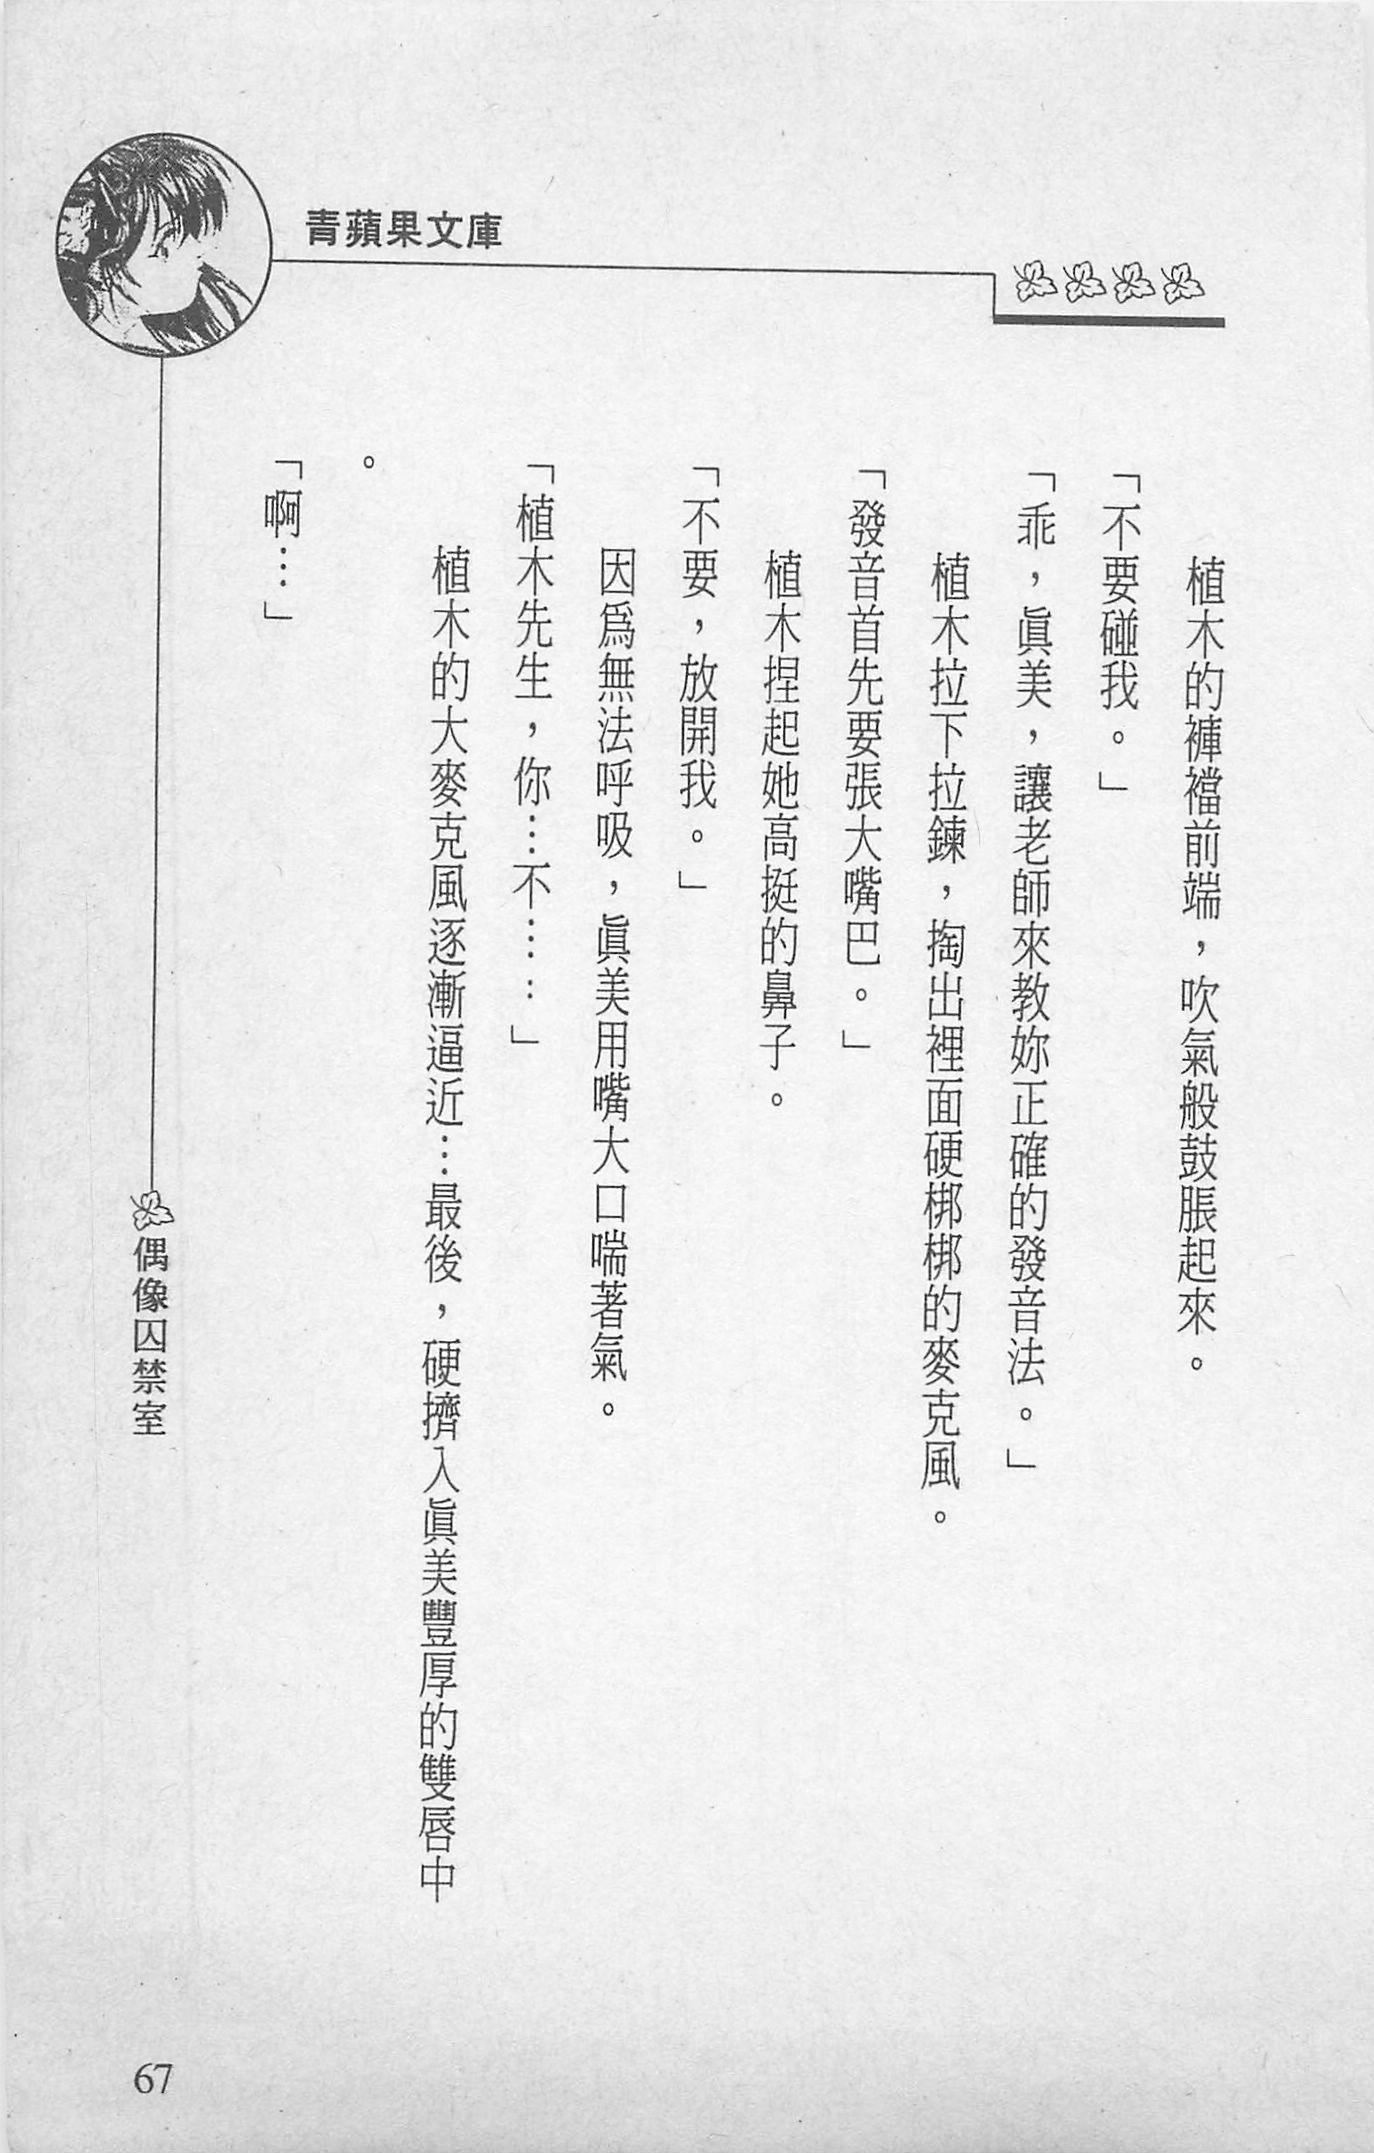 青蘋果文庫
植木的褲襠前端，吹氣般鼓脹起來。
「不要碰我。」
「乖，眞美，讓老師來教妳正確的發音法。」
植木拉下拉鍊，掏出裡面硬梆梆的麥克風。
「發音首先要張大嘴巴。」
植木捏起她高挺的鼻子。
「不要，放開我。」
因爲無法呼吸，眞美用嘴大口喘著氣。
「植木先生，你…不……」
植木的大麥克風逐漸逼近…最後，硬擠入眞美豐厚的雙唇中
。
「啊…」
偶像囚禁室
67